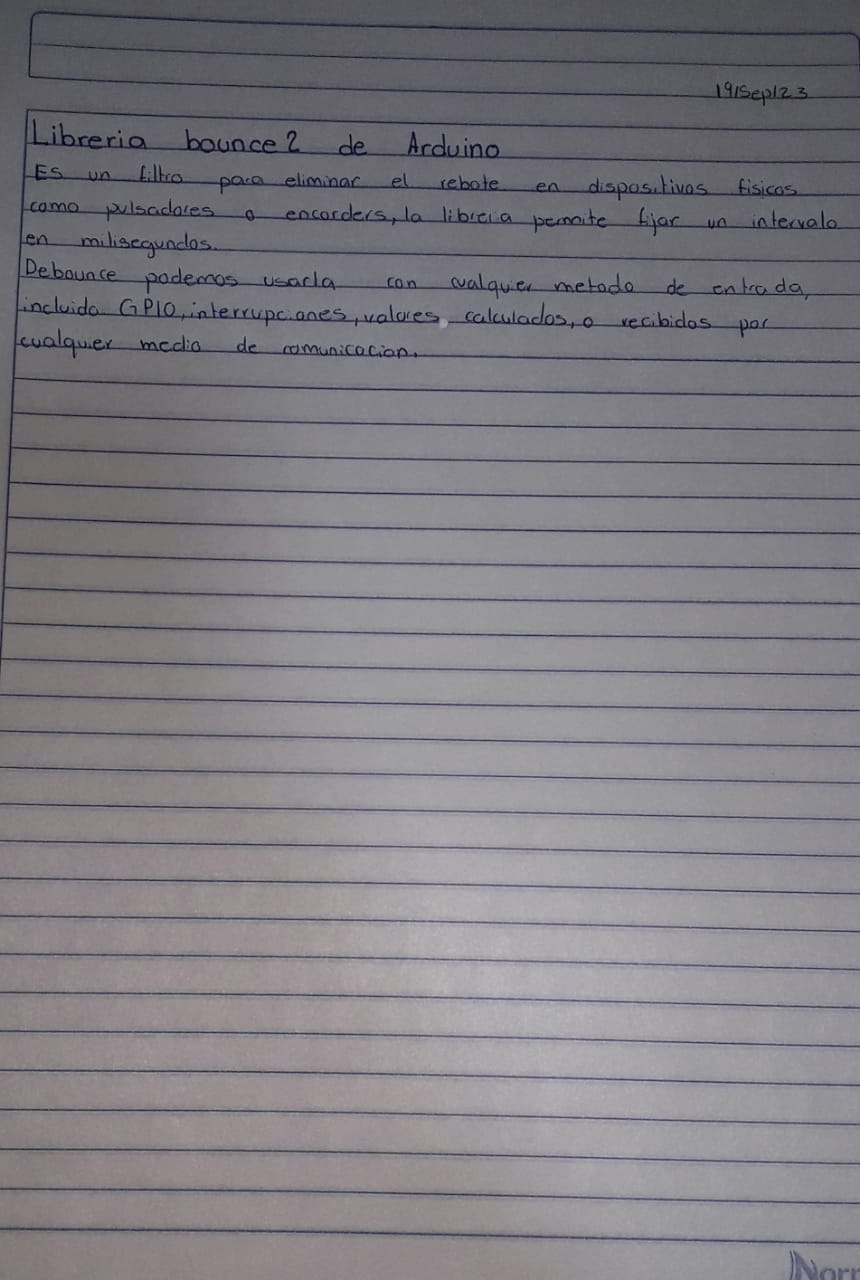 19/Sep/23
Libreria bounce2 de Arduino
Es un filtro para eliminar el rebote en dispositivos fisicos
como pulsadores o encorders, la libreria permite fijar un intervalo
en milisegundos.
Debounce podemos usarla con cualquier metodo de entrada,
incluido GPIO, interrupciones, valores calculados, o recibidos por
cualquer medio de comunicacion.
Nor